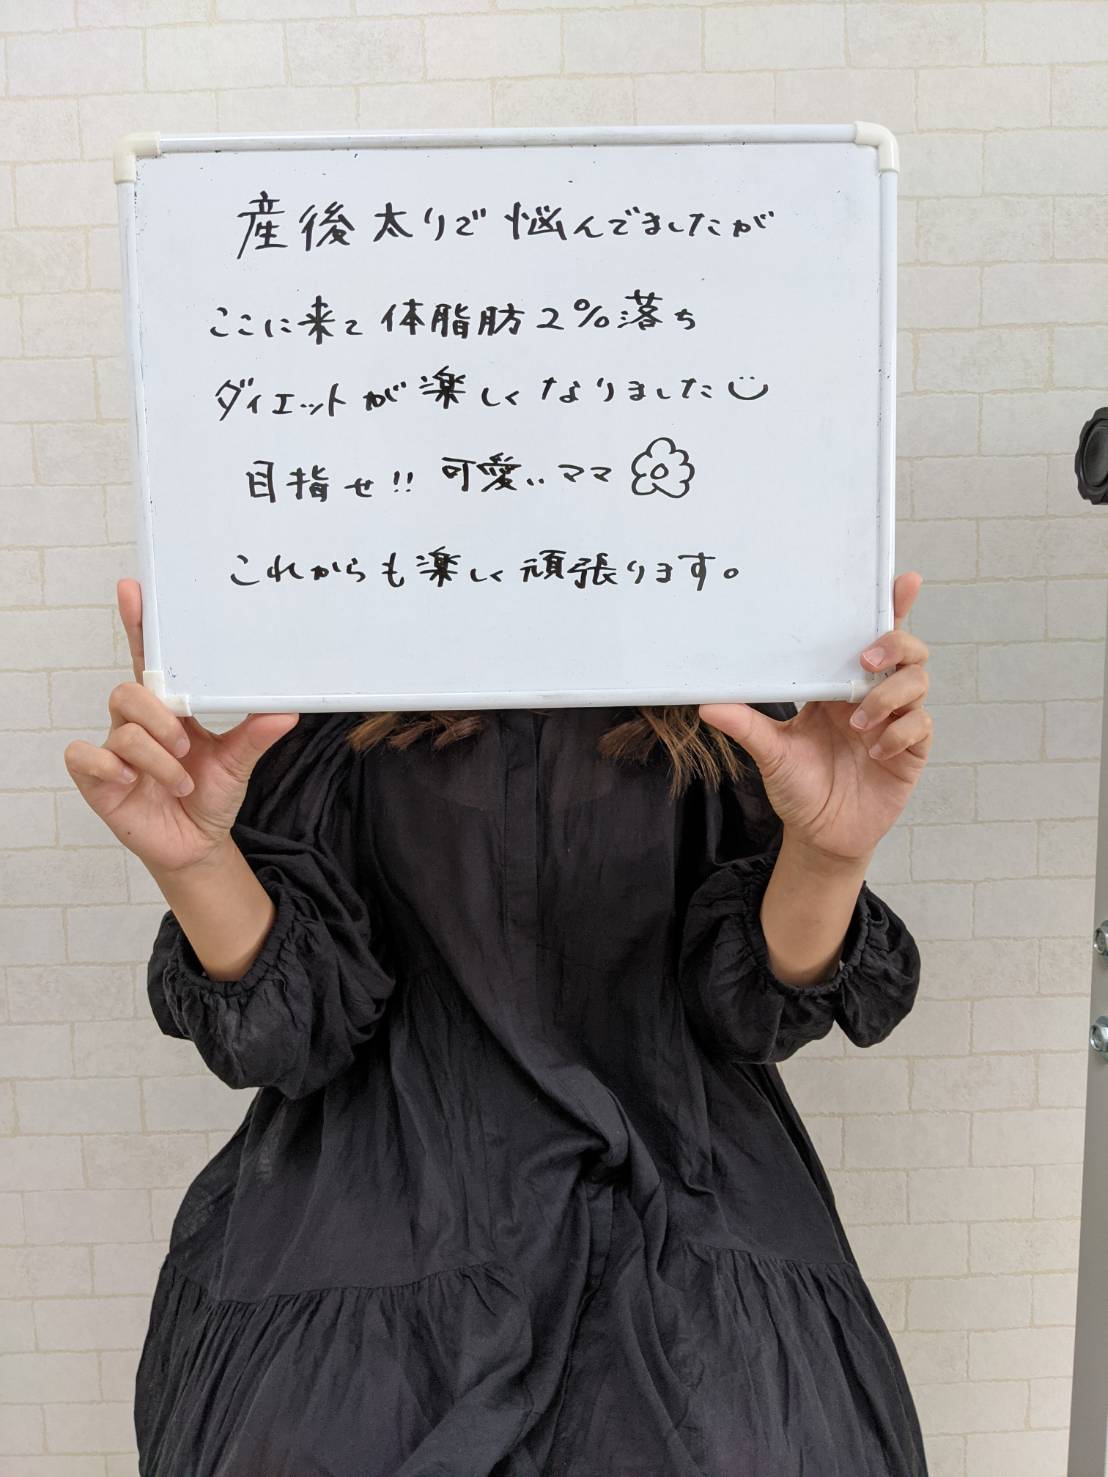 産後太りで悩んでましたが
ここに来て体脂肪2%落ち
ダイエットが楽しくなりました
目指せ!!可愛いママ
これからも楽しく頑張ります。